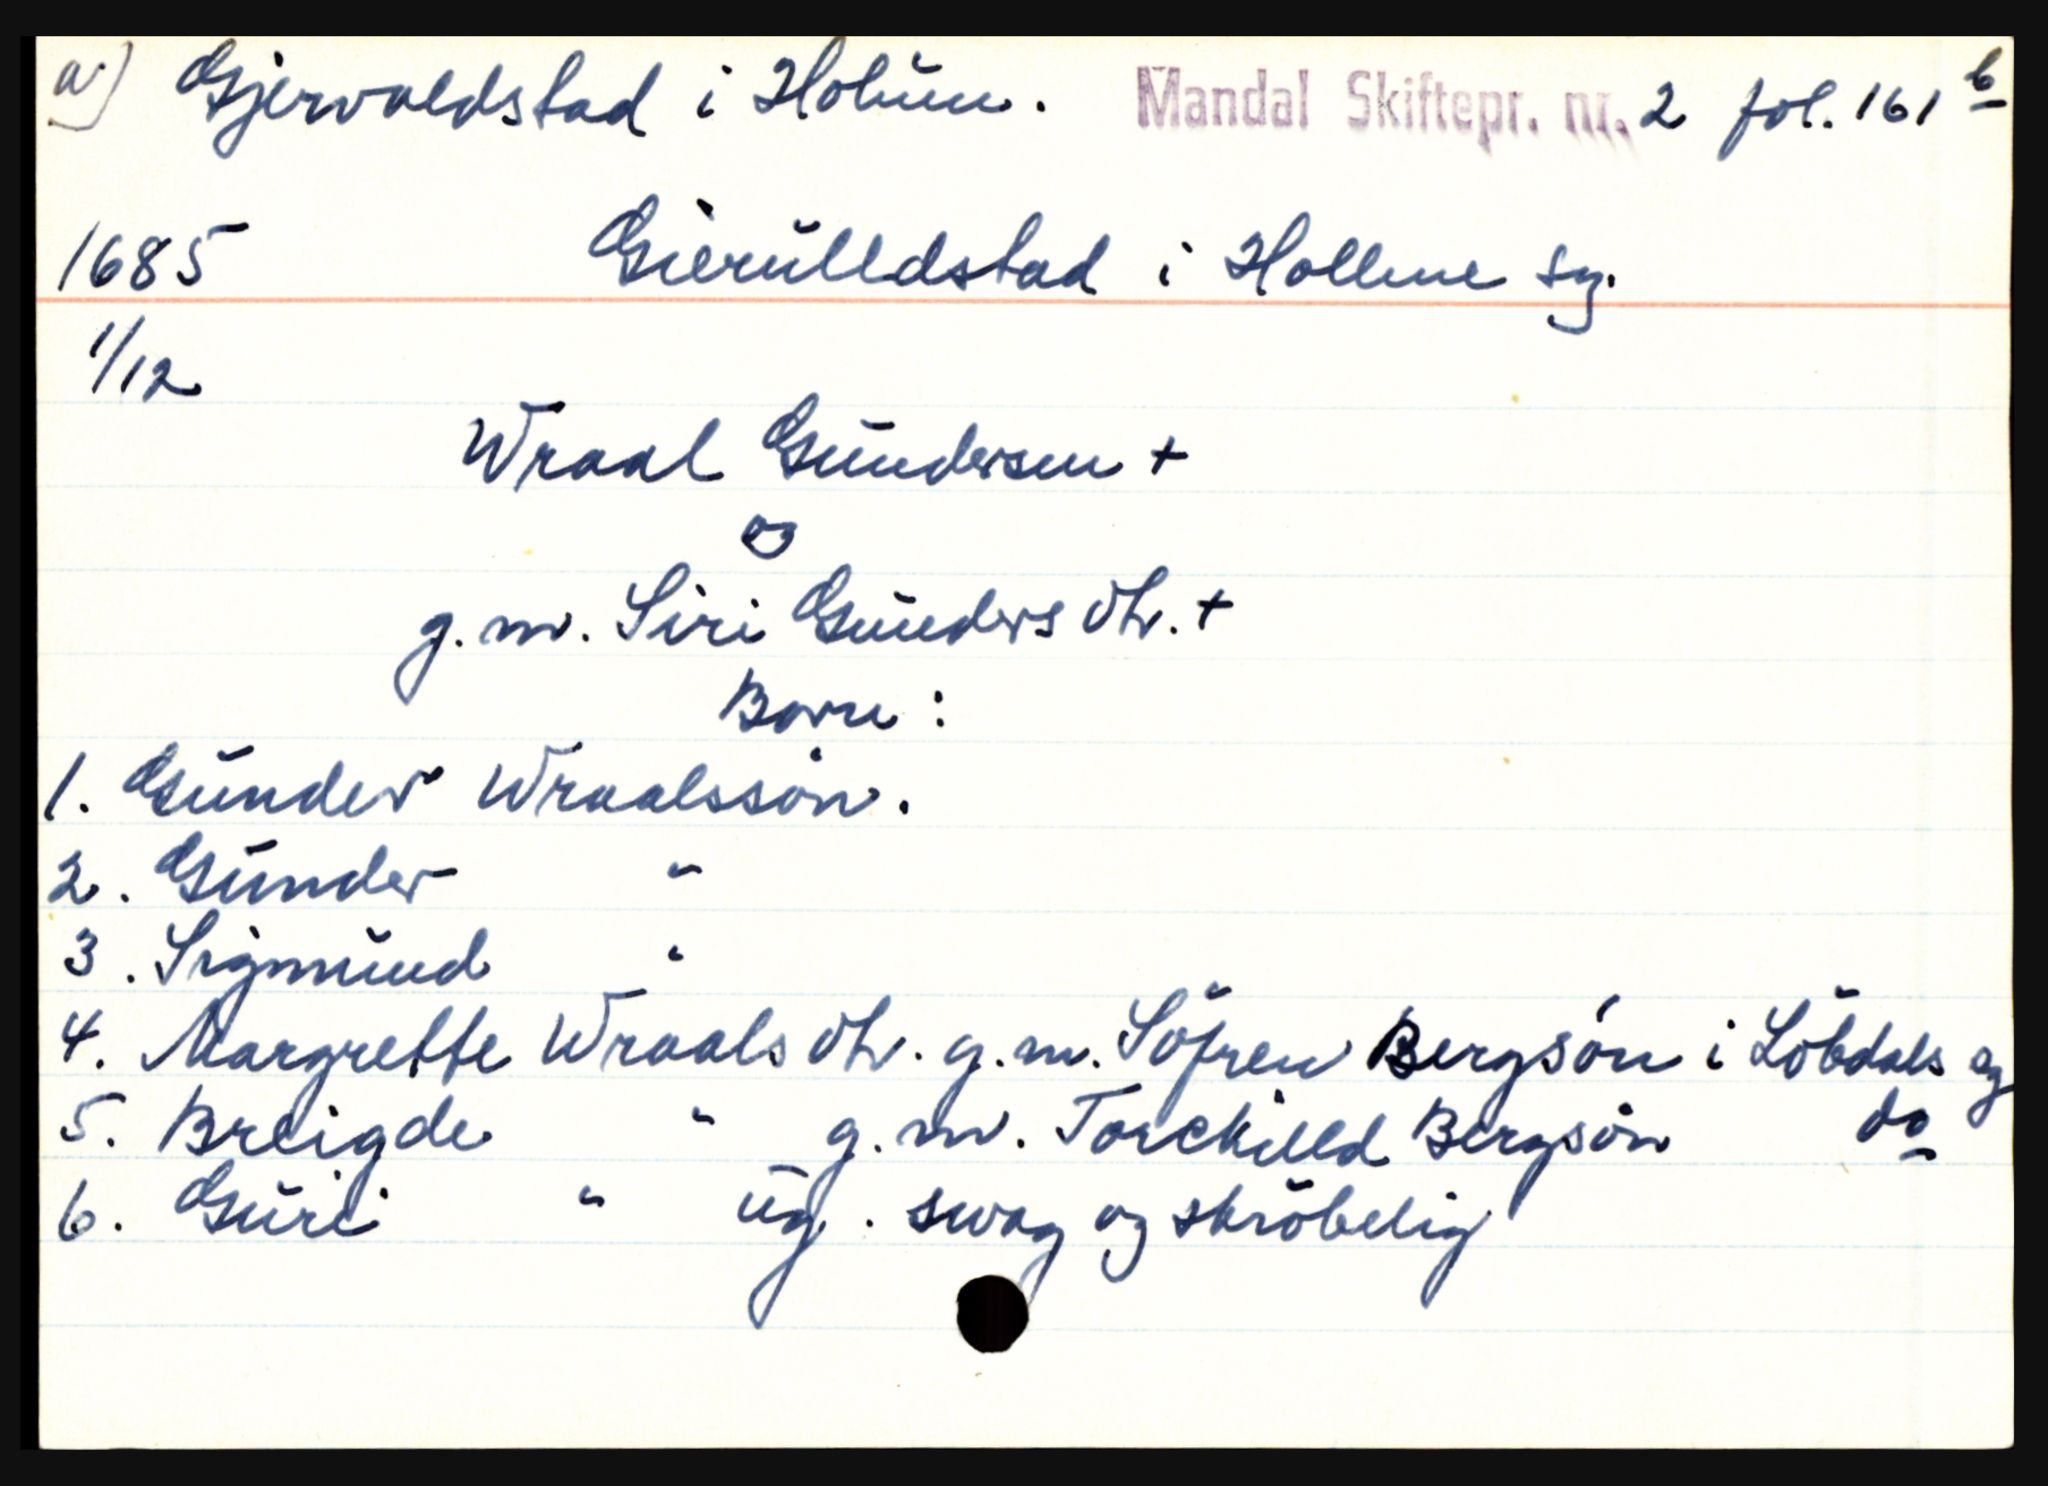 a) Gjervoldstad i Holum. Mandal Skiftepr. nr. 2 fol. 161 b
1685 Gierulldstad i Hollme sg.
1/12
Wraal Gundersen +
g.m. Siri Gunders dtr. +
Born:
1. Gunder Wraalssøn.
2. Gunder "
3. Sigmund "
4. Margrette Wraals dtr. g.m. Söfren Bergsön i Löbdals sg
5. Breigde " g.m. Torckilld Bergsön do
6. Guri " ug. swag og skröbelig